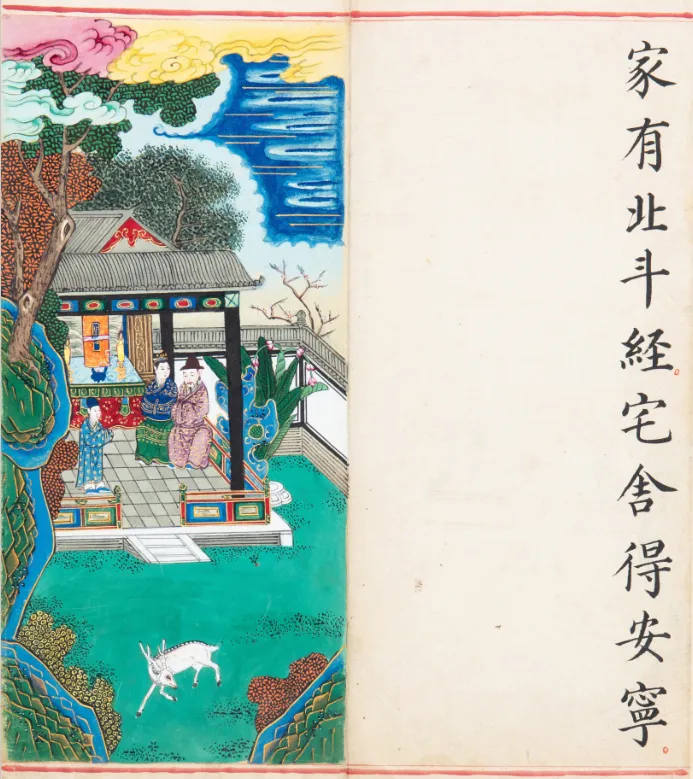 家有北斗经宅舍得安寧